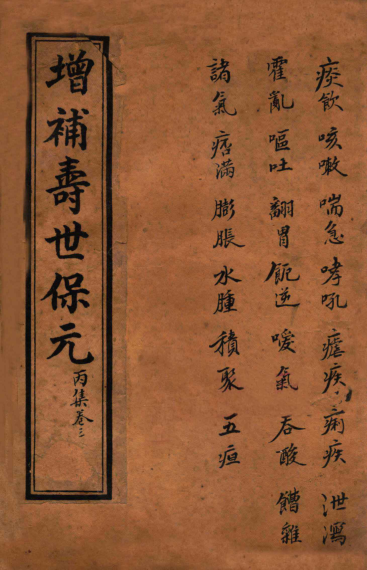 痰飲 咳嗽 喘急 哮吼 瘧疾 痢疾 泄瀉
霍亂 嘔吐 翻胃 呃逆 噯氣 吞酸 饋雜
諸氣 痞滿 膨脹 水腫 積聚 五疸
增補壽世保元
丙集卷三